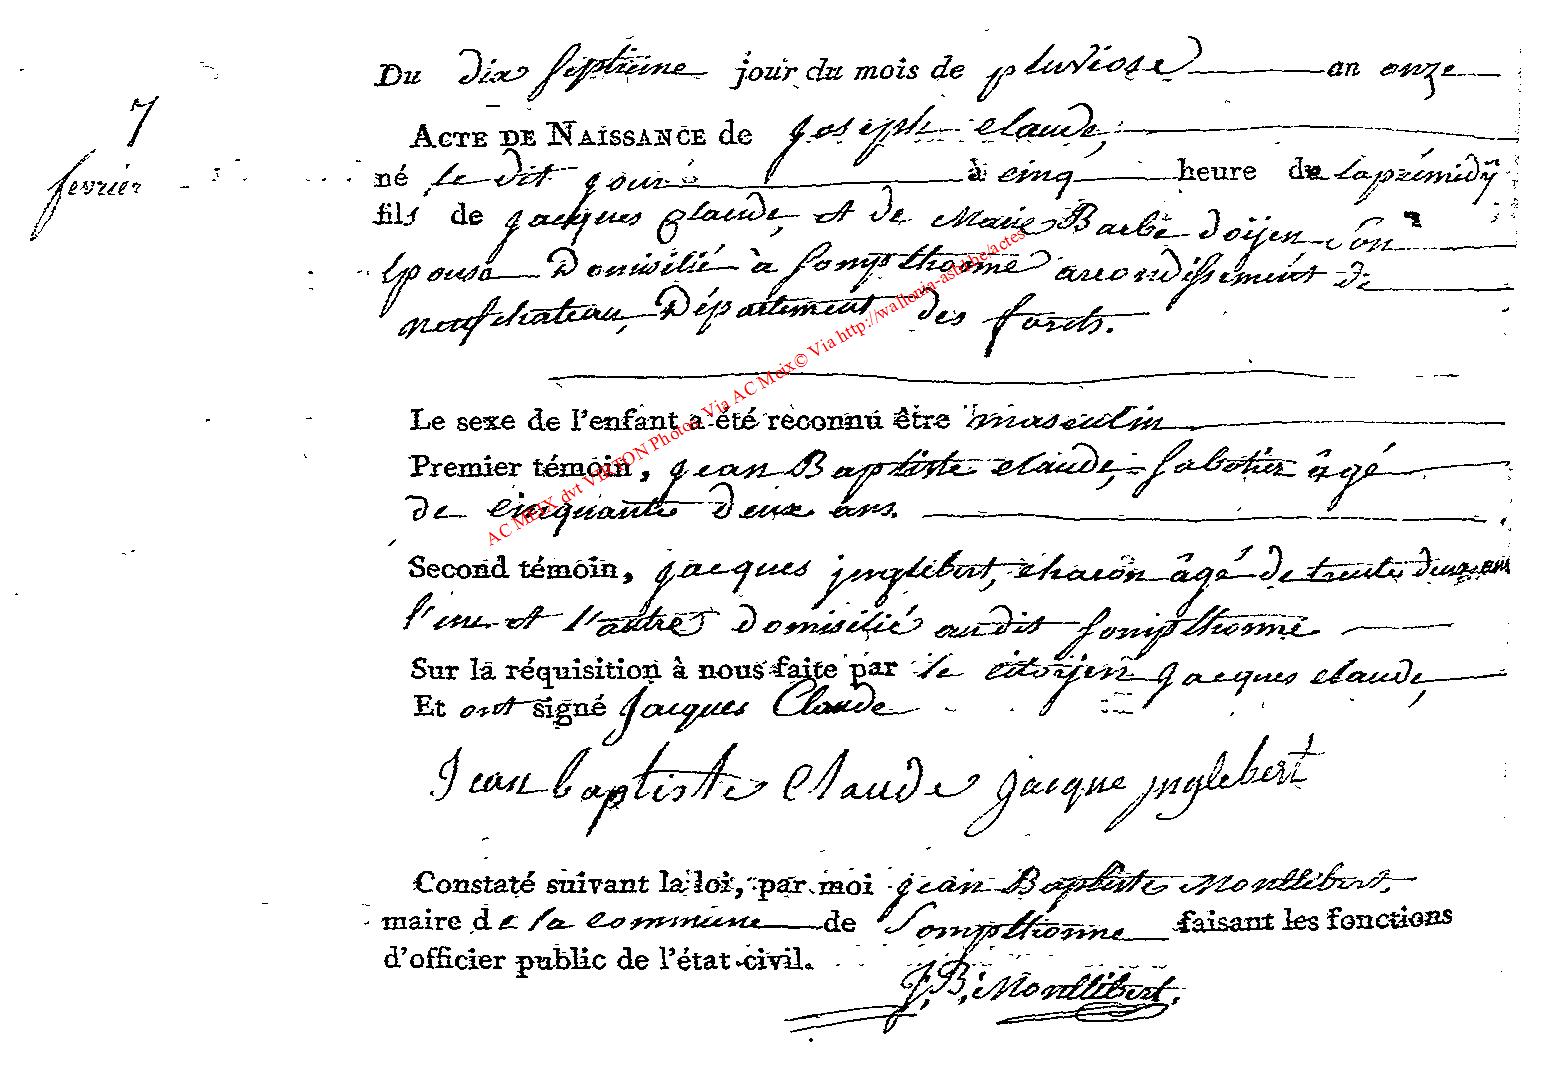 Du dix septieme jour du mois de pluviose an onze
7
fevrier
ACTE DE NAISSANCE de joseph claude,
né le dit jour à cinq heure de laprémidÿ
fils de jacques claude, et de Marie Barbe doijen son
Epouse Domisilié à sompthonne arrondissement de
neufchateau, Département des forets.
Le sexe de l'enfant a été reconnu être masculin
Premier témoin, jean Baptiste claude, sabotier âgé
de cinquante deux ans.
Second témoin, jacques jnglebert, charon âgé de trente deux ans
l'un et l'autre domisilié audit sompthonne
Sur la réquisition à nous faite par le citoijen jacques claude,
Et ont signé Jacques Claude
Jean baptiste Claude jacque jnglebert
Constaté suivant la loi, par moi jean Baptiste Monllibert,
maire de la commune de Sompthonne faisant les fonctions
d'officier public de l'état civil.
J. B. Monllibert.
AC MEIX dvt VIRTON Photos Via AC Meix© Via http://wallonia-asbl.be/actes/